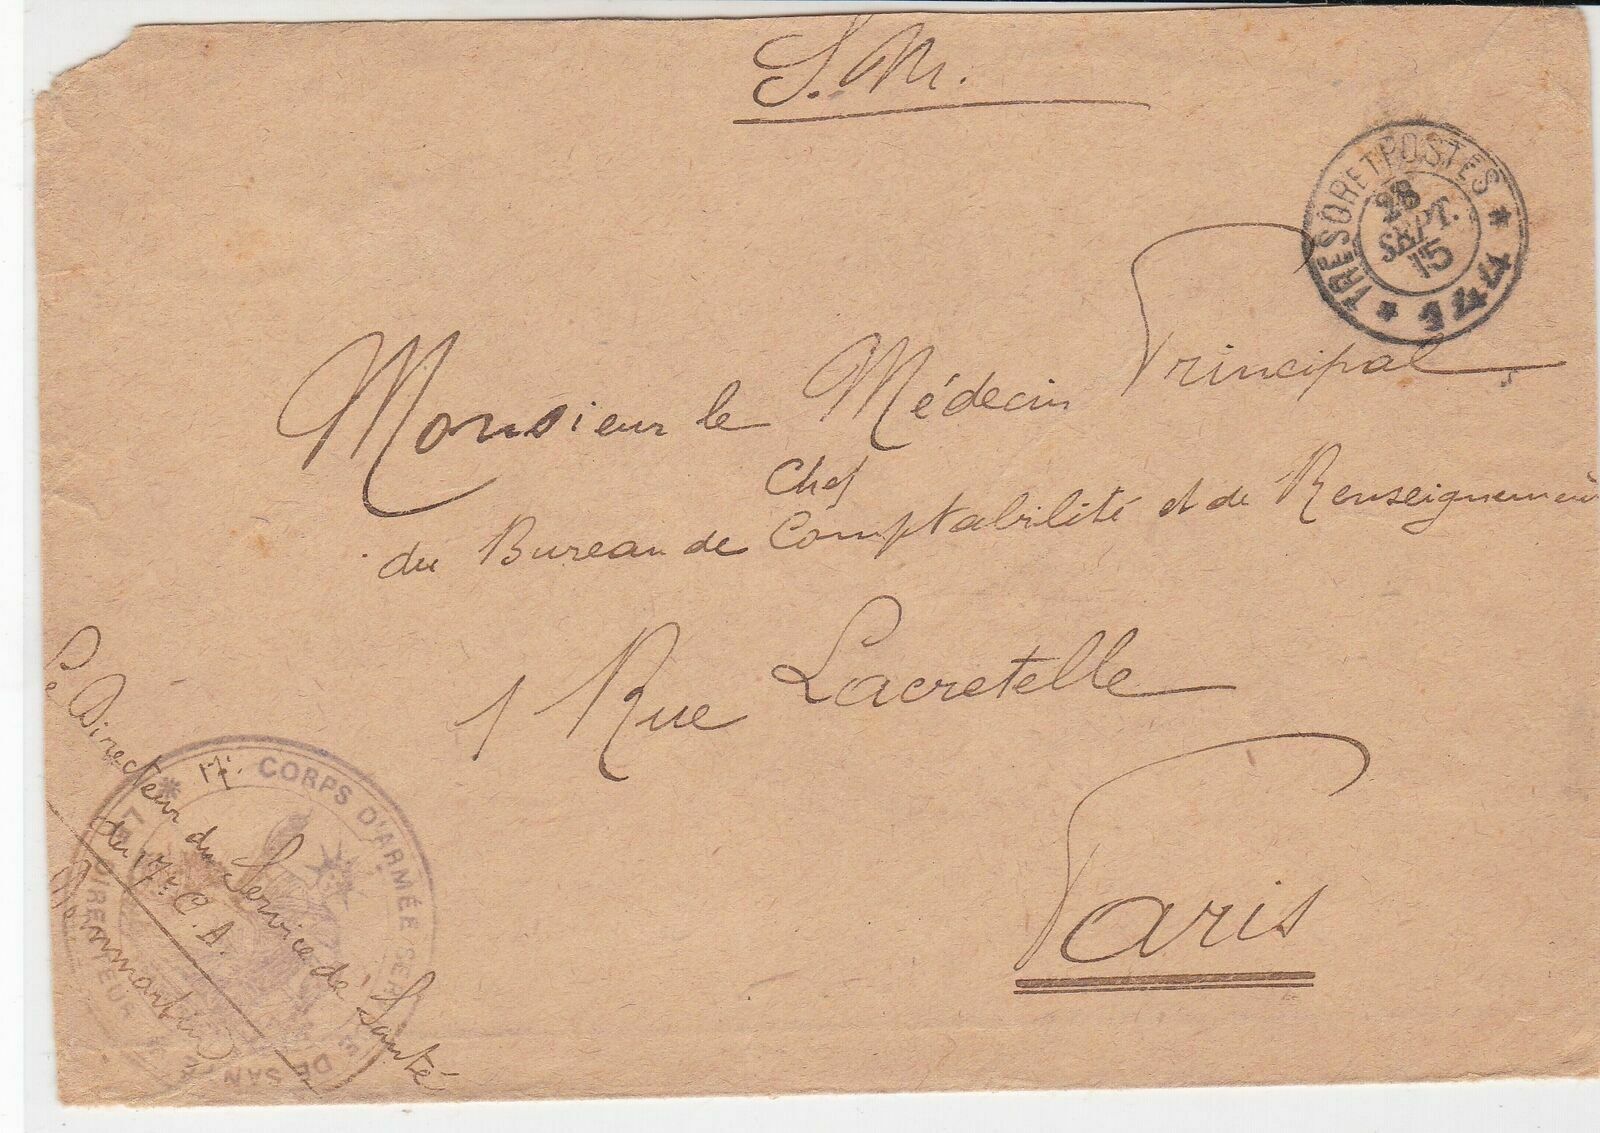 S.M.
TRESOR ET POSTES * 144 *
28
SEPT.
15
Monsieur le Médecin Principal
Chef
du Bureau de Comptabilité et de Renseignements
1 Rue Lacretelle
Paris
Le Directeur du Service de Santé
du 17e C.A.
CORPS D'ARMÉE SER
DE SAN
LE DIRECTEUR